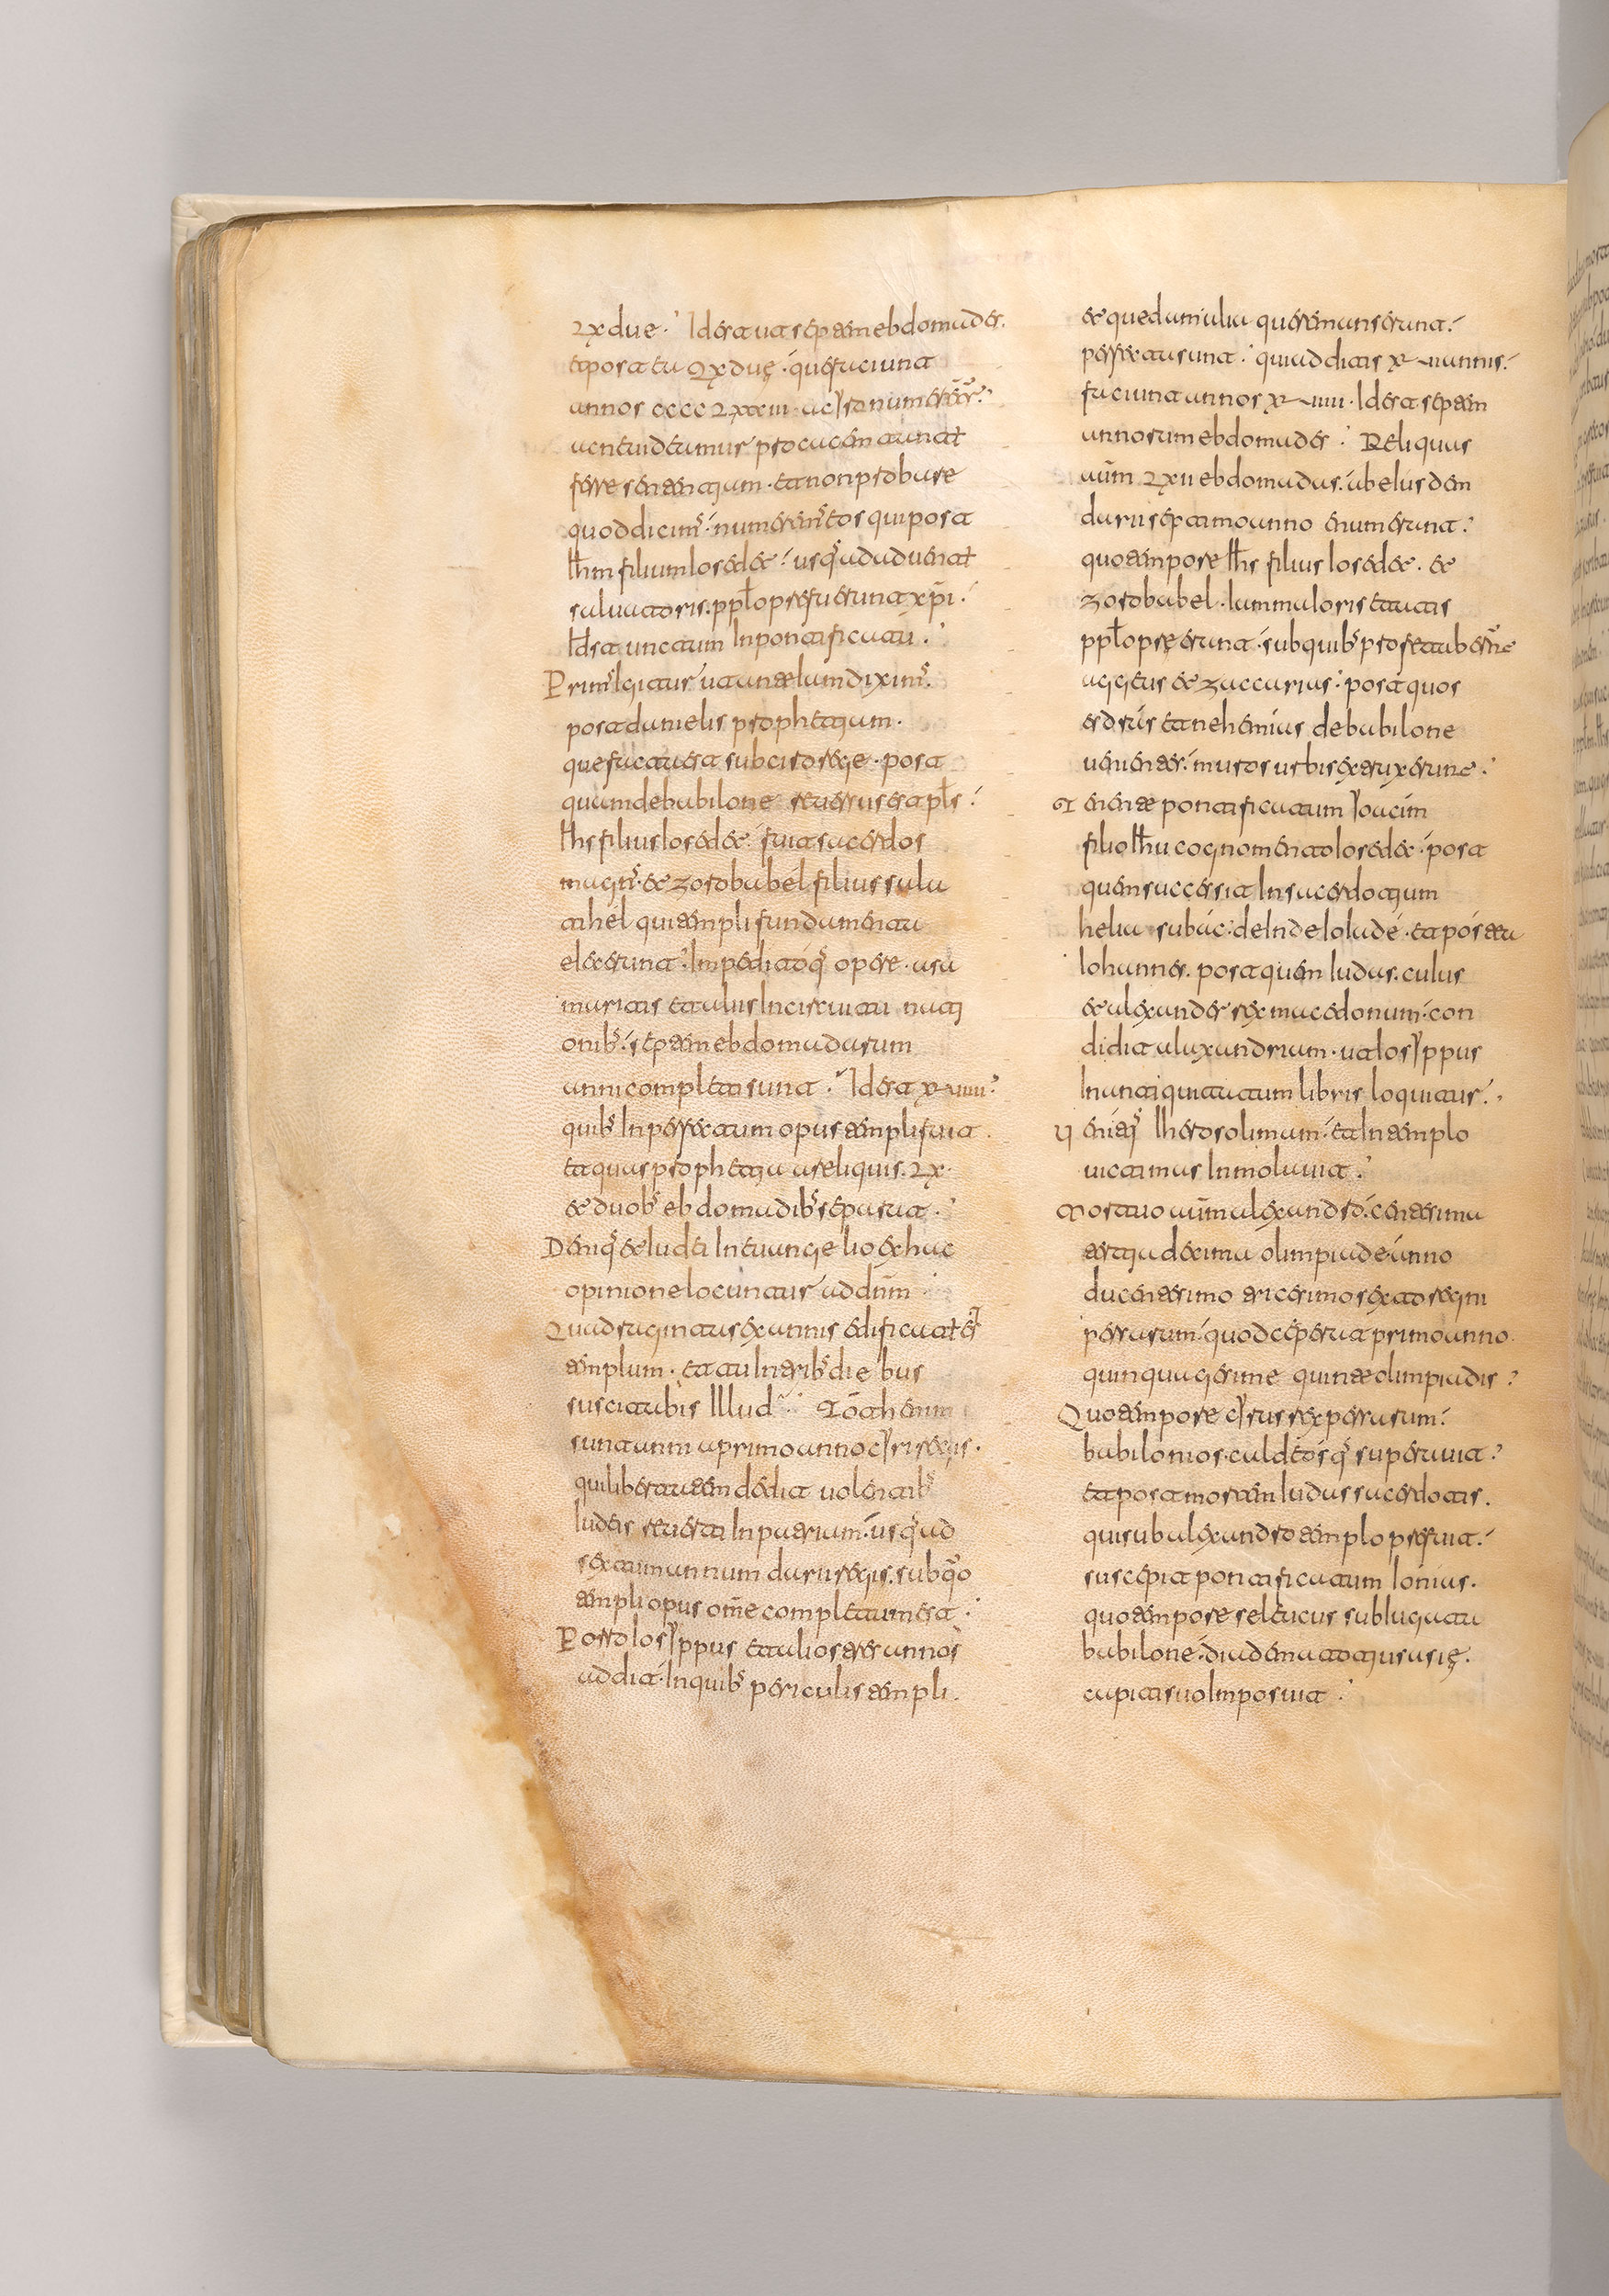 LX due. Id est ut septem ebdomades.
et postea LX duę. que faciunt
annos cccc Lxxxiii. a cyro numerentur.
ac ne uideamur procacem tantum
ferre sententiam. et non probare
quod dicims. numerems eos qui post
Ihm filium Iosedec. usq. ad aduentum
saluatoris. pplo prefuerunt xpi.
Id est unctum In pontificatu.
Prims Igitur ut ante iam diximus.
post danielis prophetiam.
que facta est sub ciro rege. post
quam de babilone reuersus est pls.
Ihs filius Iosedec. fuit sacerdos
magns. et zorobabel filius sala
tihel qui templi fundamenta
Iecerunt. Impeditoq. opere. a sa
maritis et aliis In circuitu nati
onibs. septem ebdomadarum
anni completi sunt. Id est xlviiii.
quibs Inperfectum opus templi fuit.
et quas prophetia a reliquis. LX.
et duobs ebdomadibs separat.
Deniq. et Iudei In euangelio ex hac
opinione locuntur ad dnm
Quadraginta sex annis edificatum est
templum. et tu In tribs diebus
suscitabis Illud. Tot enim
sunt anni a primo anno cyri regis.
qui libertatem dedit uolentibs
Iudeis reuerti In patriam. usq. ad
sextum annum darii regis. sub quo
templi opus omne completum est.
Porro Iosyppus et alios tres annos
addit. In quibs periculis templi.
et quedam alia que remanserunt.
perfecta sunt. qui additis xlvi annis.
faciunt annos xlviiii. Id est septem
annorum ebdomades. Reliquas
aum LXii ebdomadas. ab eiusdem
darii septimo anno enumerant.
quo tempore Ihs filius Iosedec. et
zorobabel. Iam maioris etatis
pplo preerant. sub quibs profetaberunt
aggeus et zaccarias. post quos
esdras et nehemias de babilone
uenientes. muros urbis extruxerunt.
Tenente pontificatum Ioacim
filio Ihu cognomento Iosedec. post
quem successit In sacerdotium
heliasubac. deInde Ioiade. et post eu
Iohannes. post quem Iudas. cuius
et alexander rex macedonum. con
didit alaxandriam. ut Iosyppus
In antiquitatum libris loquitur.
Venitq. Iherosolimam. et In templo
uictimas Inmolauit.
Mortuo aum alexandro. centesima
tertia decima olimpiade. anno
ducentesimo tricesimo sexto regni
persarum. quod ceperat primo anno
quinquagesime quinte olimpiadis.
Quo tempore cyrus rex persarum.
babilonios. caldeosq. superauit.
et post mortem Iudas sacerdotis.
qui sub alexandro templo prefuit.
suscepit pontificatum Ionias.
quo tempore seleucus subiugata
babilone. diadema totius asię.
capiti suo Imposuit.